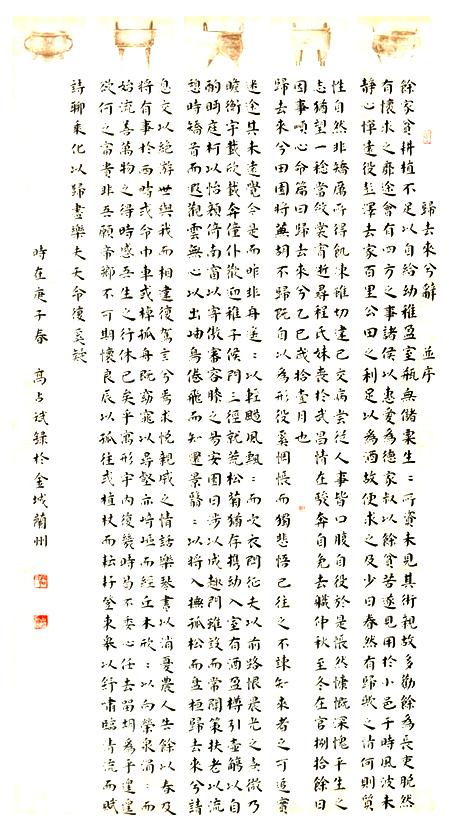 歸去來兮辭 並序
餘家貧耕植不足以自給幼稚盈室瓶無儲粟生：所資未見其術親故多勸餘為長吏脫然
有懷求之靡途會有四方之事諸侯以惠愛為德家叔以餘貧苦遂見用於小邑于時風波未
靜心憚遠役彭澤去家百里公田之利足以為酒故便求之及少日眷然有歸歟之情何則質
性自然非矯厲所得飢凍雖切違己交病嘗從人事皆口腹自役於是悵然慷慨深愧平生之
志猶望一稔當斂裳宵逝尋程氏妹喪於武昌情在駿奔自免去職仲秋至冬在官捌拾餘日
因事順心命篇曰歸去來兮乙巳歲拾壹月也
歸去來兮田園將蕪胡不歸既自以為形役奚惆悵而獨悲悟已往之不諫知來者之可追實
迷途其未遠覺今是而昨非舟遙：以輕颺風飄：而吹衣問征夫以前路恨晨光之熹微乃
瞻衡宇載欣載奔僮僕歡迎稚子候門三徑就荒松菊猶存攜幼入室有酒盈樽引壺觴以自
酌眄庭柯以怡顏倚南窗以寄傲審容膝之易安園日涉以成趣門雖設而常關策扶老以流
憩時矯首而遐觀雲無心以出岫鳥倦飛而知還景翳：以將入撫孤松而盤桓歸去來兮請
息交以絕游世與我而相違復駕言兮焉求悅親戚之情話樂琴書以消憂農人告餘以春及
將有事於西疇或命巾車或棹孤舟既窈窕以尋壑亦崎嶇而經丘木欣：以向榮泉涓：而
始流善萬物之得時感吾生之行休已矣乎寓形宇內復幾時曷不委心任去留胡為乎遑遑
欲何之富貴非吾願帝鄉不可期懷良辰以孤往或植杖而耘耔登東皋以舒嘯臨清流而賦
詩聊乘化以歸盡樂夫天命復奚疑
時在庚子春 高占斌錄於金城蘭州